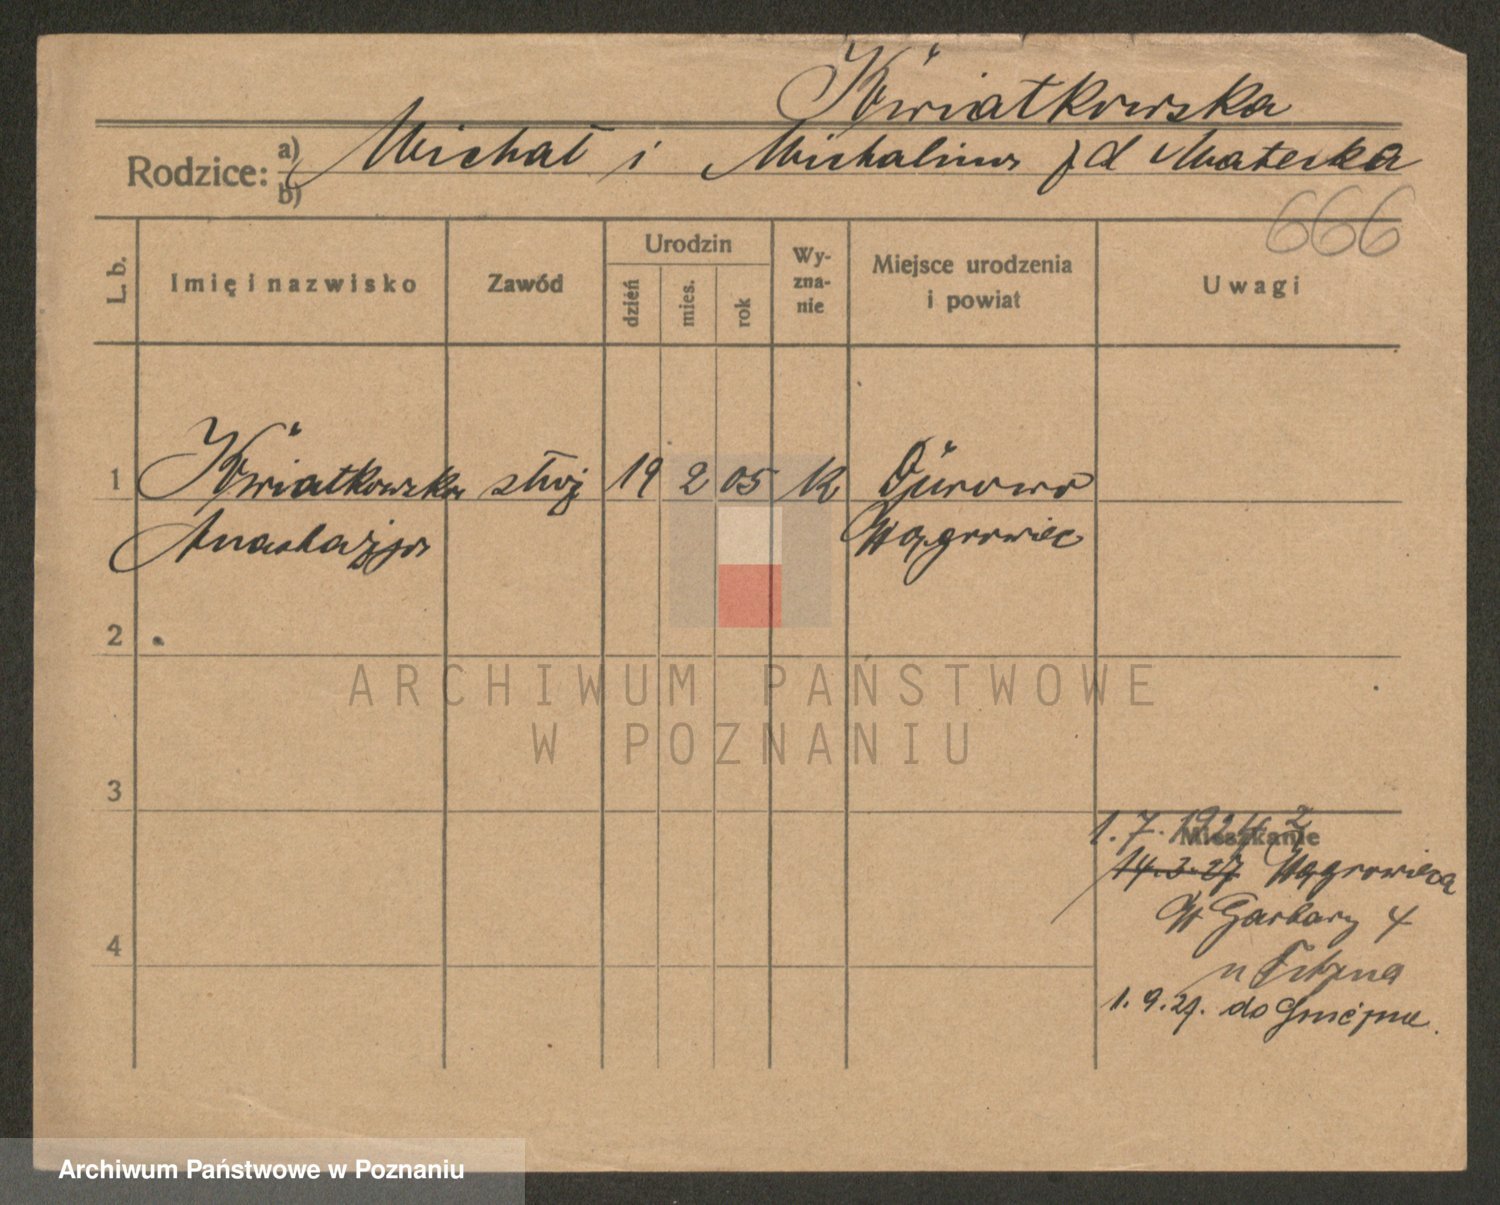 Kwiatkowska
Rodzice: a) Michał i Michalina z d Materka
b)
666
L. b. Imię i nazwisko Zawód Urodzin dzień mies. rok Wyznanie Miejsce urodzenia i powiat Uwagi
1 Kwiatkowska służ 19 2 05 k Żurowo
Anastazja Wągrowiec
2
ARCHIWUM PAŃSTWOWE
W POZNANIU
3
1.7.192 z
Mieszkanie
14.3.27 Wągrowca
W Garbary 4
4
u
1.9.27. do
Archiwum Państwowe w Poznaniu